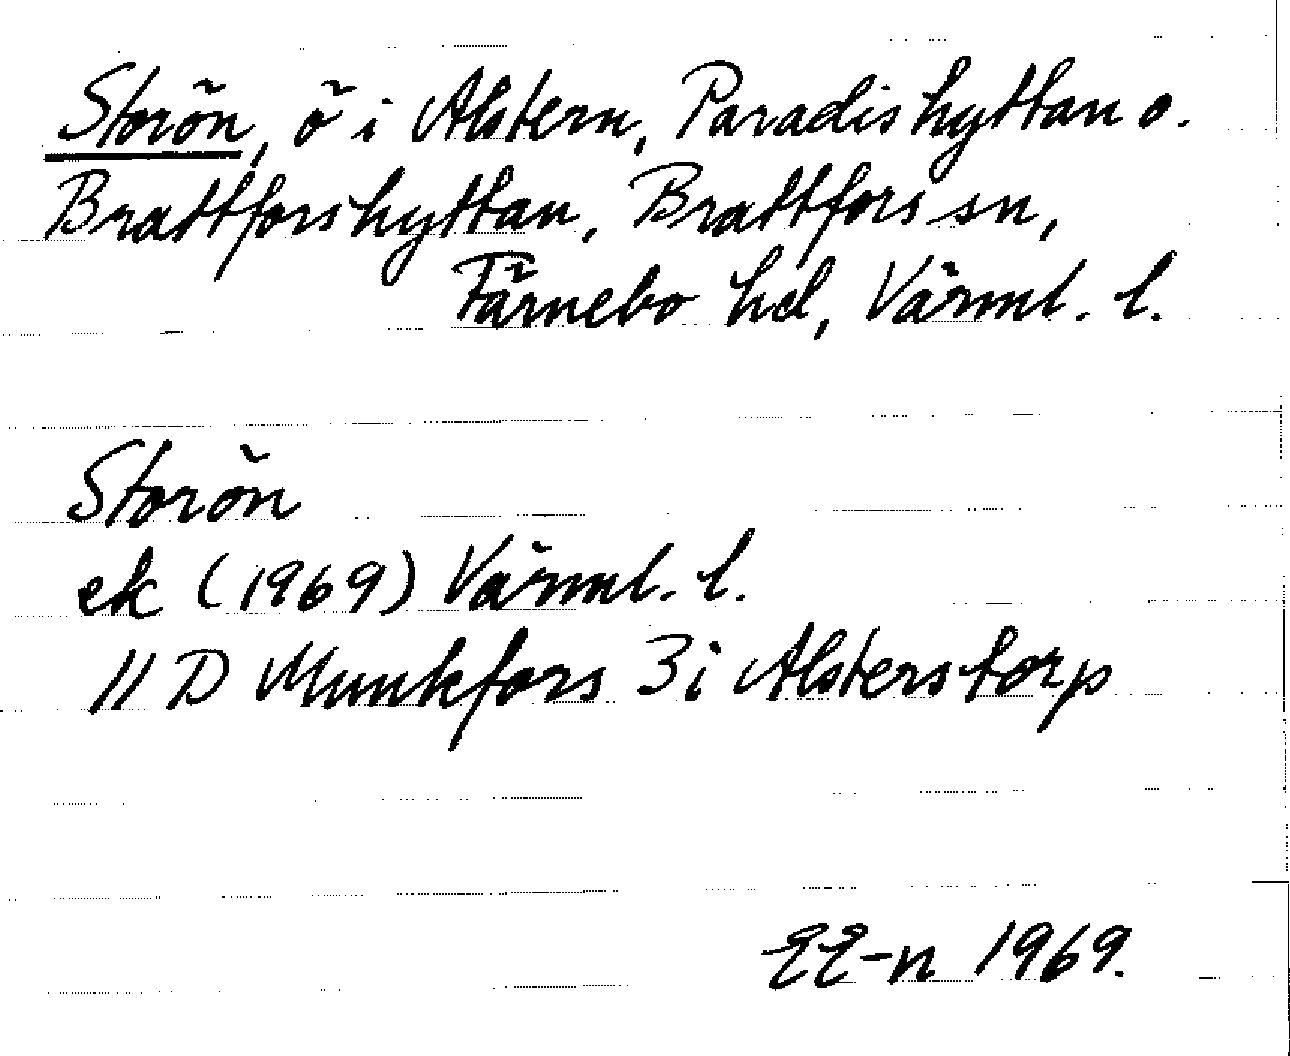 Storön, ö i Alstern, Paradishyttan o.
Brattforshyttan, Brattfors sn,
Färnebo hd, Värml. l.
Storön
ek (1969) Värml. l.
11 D Munkfors 3 i Alsterstorp
EE-n 1969.